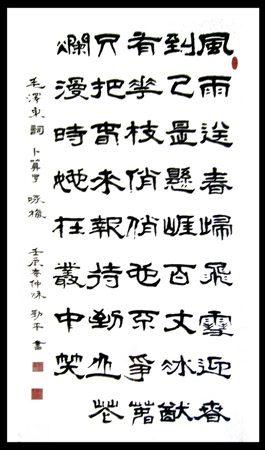 風雨送春歸飛雪迎春
到已是懸崖百丈冰猶
有花枝俏俏也不爭春
只把春來報待到山花
爛漫時她在叢中笑
毛澤東詞 卜算子 咏梅 壬辰 仲 書